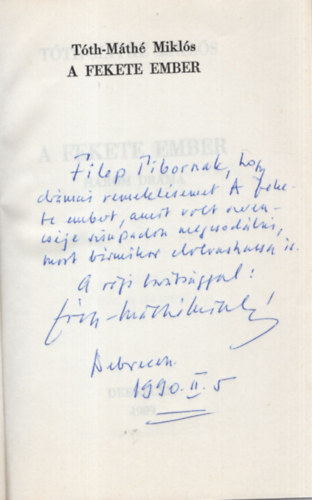 Tóth-Máthé Miklós
A FEKETE EMBER
Filep Tibornak, hogy
drámai remeklésemet A feke-
te embert, amit volt szeren-
cséje színpadon megcsodálni,
most bármikor elolvashassa is.
A régi barátsággal:
Tóth-Máthé Miklós
Debrecen.
1990. II. 5